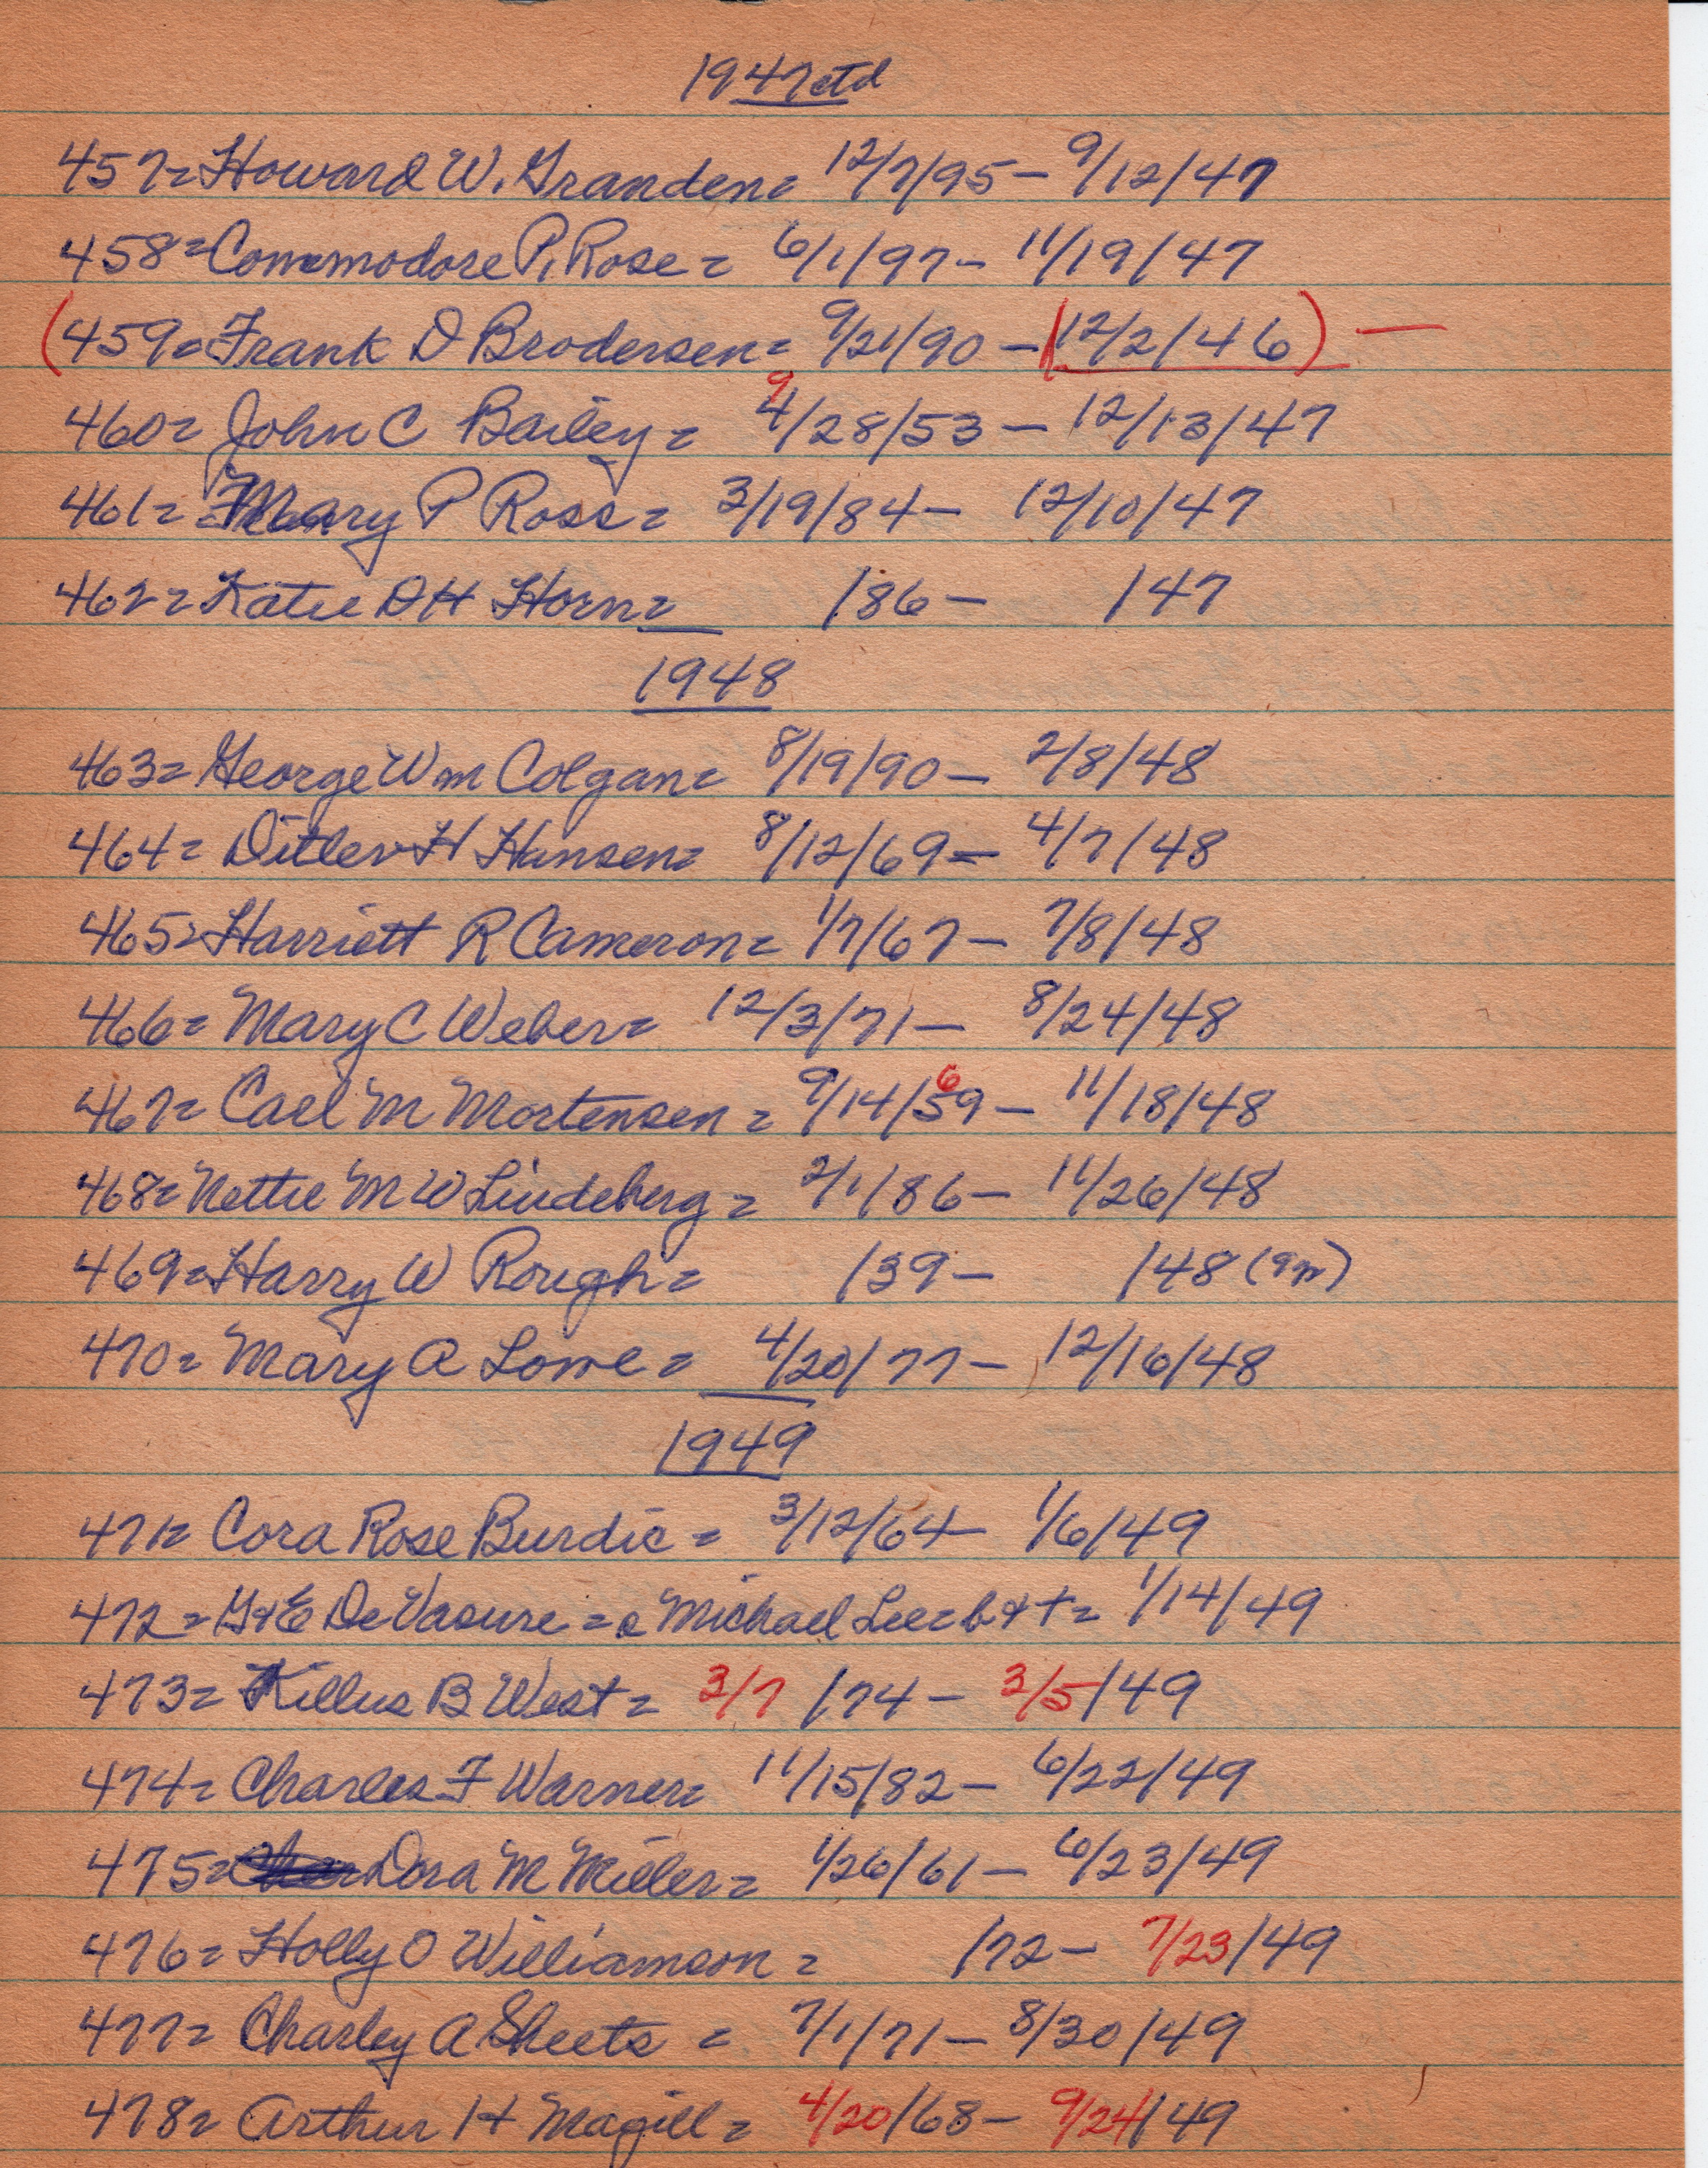 1947 ctd
457= Howard W. Granden= 12/7/95 - 9/12/47
458= Commodore P. Rose= 6/1/97 - 11/19/47
(459= Frank D Brodersen= 9/21/90 - (12/2/46) -
9
460= John C Bailey= 4/28/53 - 12/13/47
461= Mary P Ross= 3/19/84 - 12/10/47
462= Katie D H Horn= /86 - /47
1948
463= George Wm Colgan= 8/19/90 - 2/8/48
464= Ditlev H Hansen= 8/12/69 - 4/7/48
465= Harriett R Cameron= 1/7/67 - 7/8/48
466= Mary C Weber= 12/3/71 - 8/24/48
6
467= Carl M Mortensen= 9/14/59 - 11/18/48
468= Nettie M W Lindeberg= 2/1/86 - 11/26/48
469= Harry W Rough= /39 - /48 (9m)
470= Mary A Lowe= 4/20/77 - 12/16/48
1949
471= Cora Rose Burdic= 3/12/64 - 1/6/49
472= G&E DeVasure= c Michael Lee= b & += 1/14/49
473= Killus B West= 3/7/74 - 3/5/49
474= Charles F Warner= 11/15/82 - 6/22/49
475= Dora M Miller= 1/26/61 - 6/23/49
476= Holly O Williamson= /72 - 7/23/49
477= Charley A Sheets= 7/1/71 - 8/30/49
478= Arthur H Magill= 4/20/68 - 9/24/49